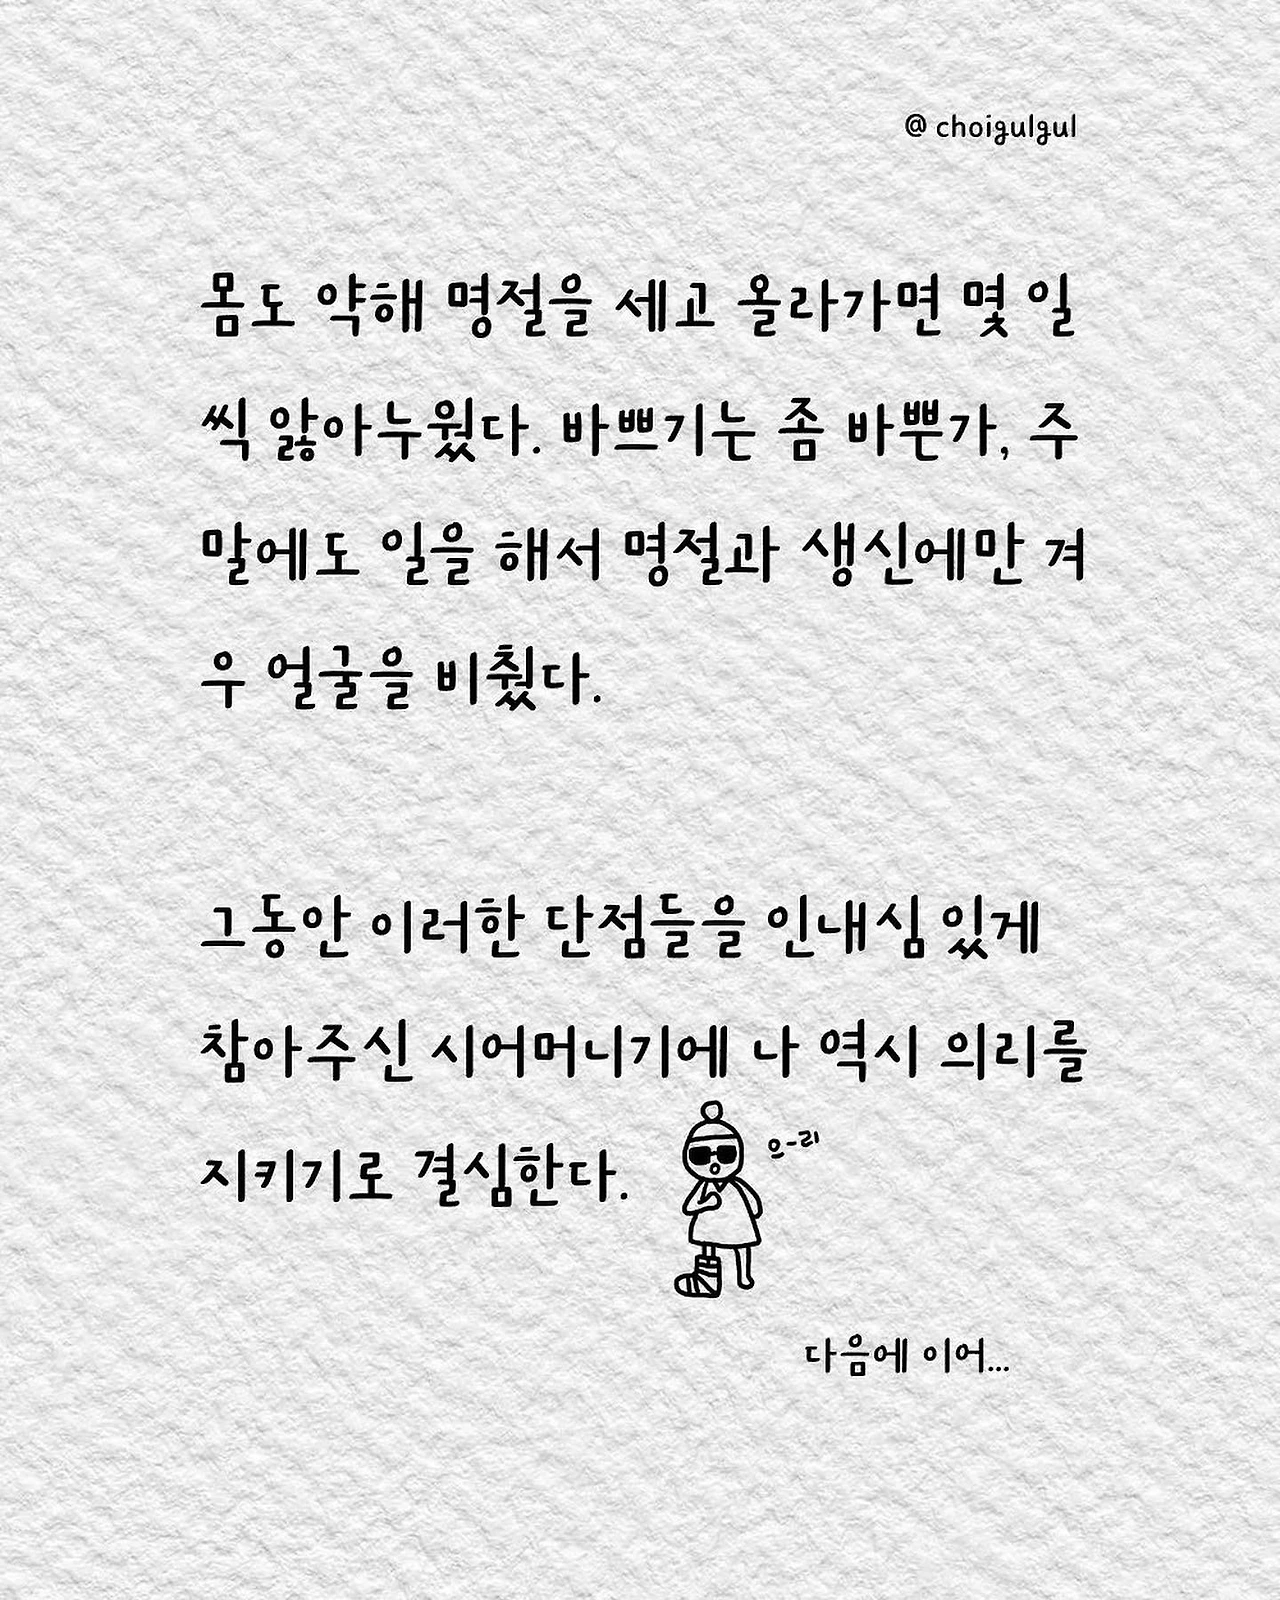 @ choigulgul
몸도 약해 명절을 세고 올라가면 몇 일
씩 앓아누웠다. 바쁘기는 좀 바쁜가, 주
말에도 일을 해서 명절과 생신에만 겨
우 얼굴을 비췄다.
그동안 이러한 단점들을 인내심 있게
참아주신 시어머니기에 나 역시 의리를
지키기로 결심한다.
으-리
다음에 이어...